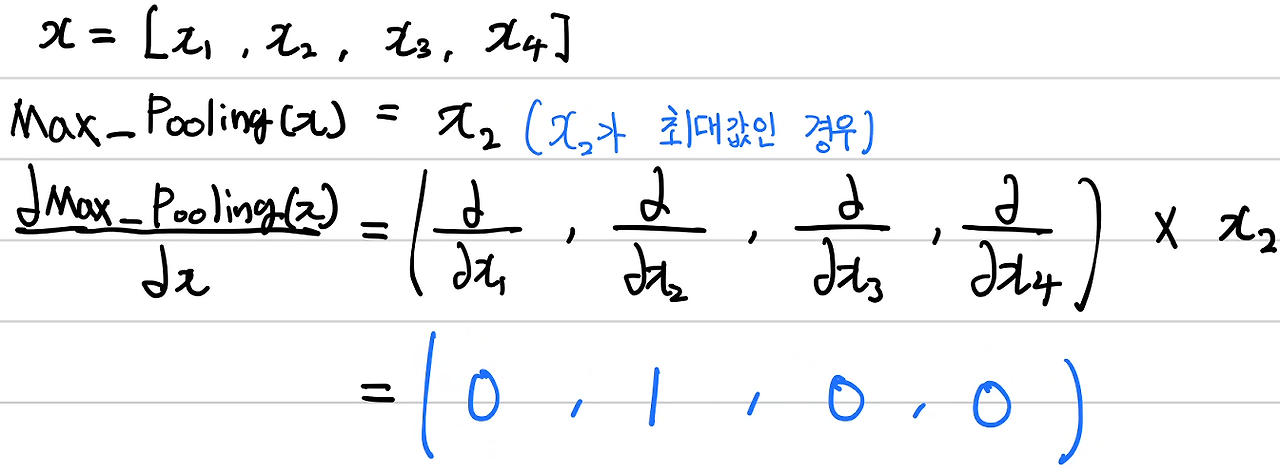 x = [x₁, x₂, x₃, x₄]
Max_Pooling(x) = x₂ (x₂가 최대값인 경우)
∂Max_Pooling(x)/∂x = (∂/∂x₁, ∂/∂x₂, ∂/∂x₃, ∂/∂x₄) × x₂
= (0, 1, 0, 0)